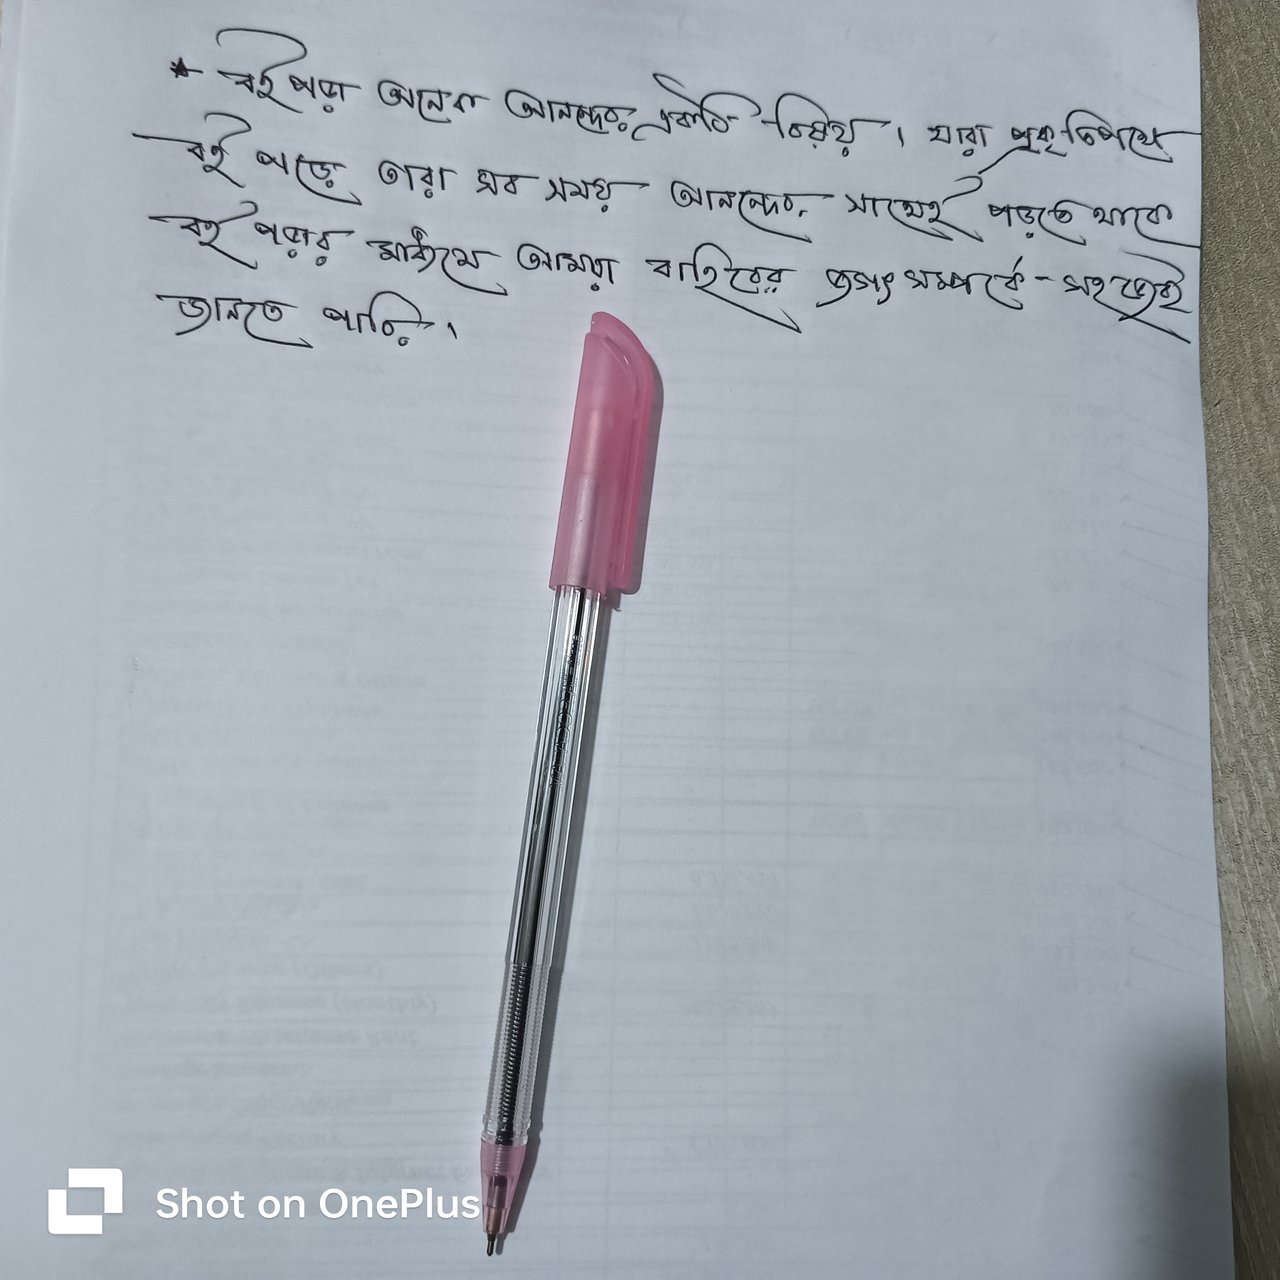 * বই পড়া অনেক আনন্দের একটি বিষয়। যারা প্রকৃতপক্ষে
বই পড়ে তারা সব সময় আনন্দের সাথেই পড়তে থাকে
বই পড়ার মাধ্যমে আমরা বাহিরের জগৎ সম্পর্কে সহজেই
জানতে পারি।
Shot on OnePlus